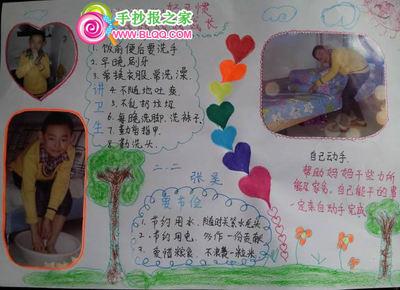 手抄报之家
WWW.BLQQ.COM
好习惯
成长
讲卫生
1. 饭前便后要洗手
2. 早晚刷牙
3. 常换衣服.常洗澡
4. 不随地吐痰
5. 不乱扔垃圾
6. 每晚洗脚.洗袜子.
7. 勤剪指甲
8. 勤洗头.
二.二
张昊
要节俭
1. 节约用水,随时关紧水龙头
2. 节约用电,
3. 爱惜粮食 不浪费一粒米
自己动手
帮助妈妈干些力所
能及家务,自己能干的事
一定亲自动手完成